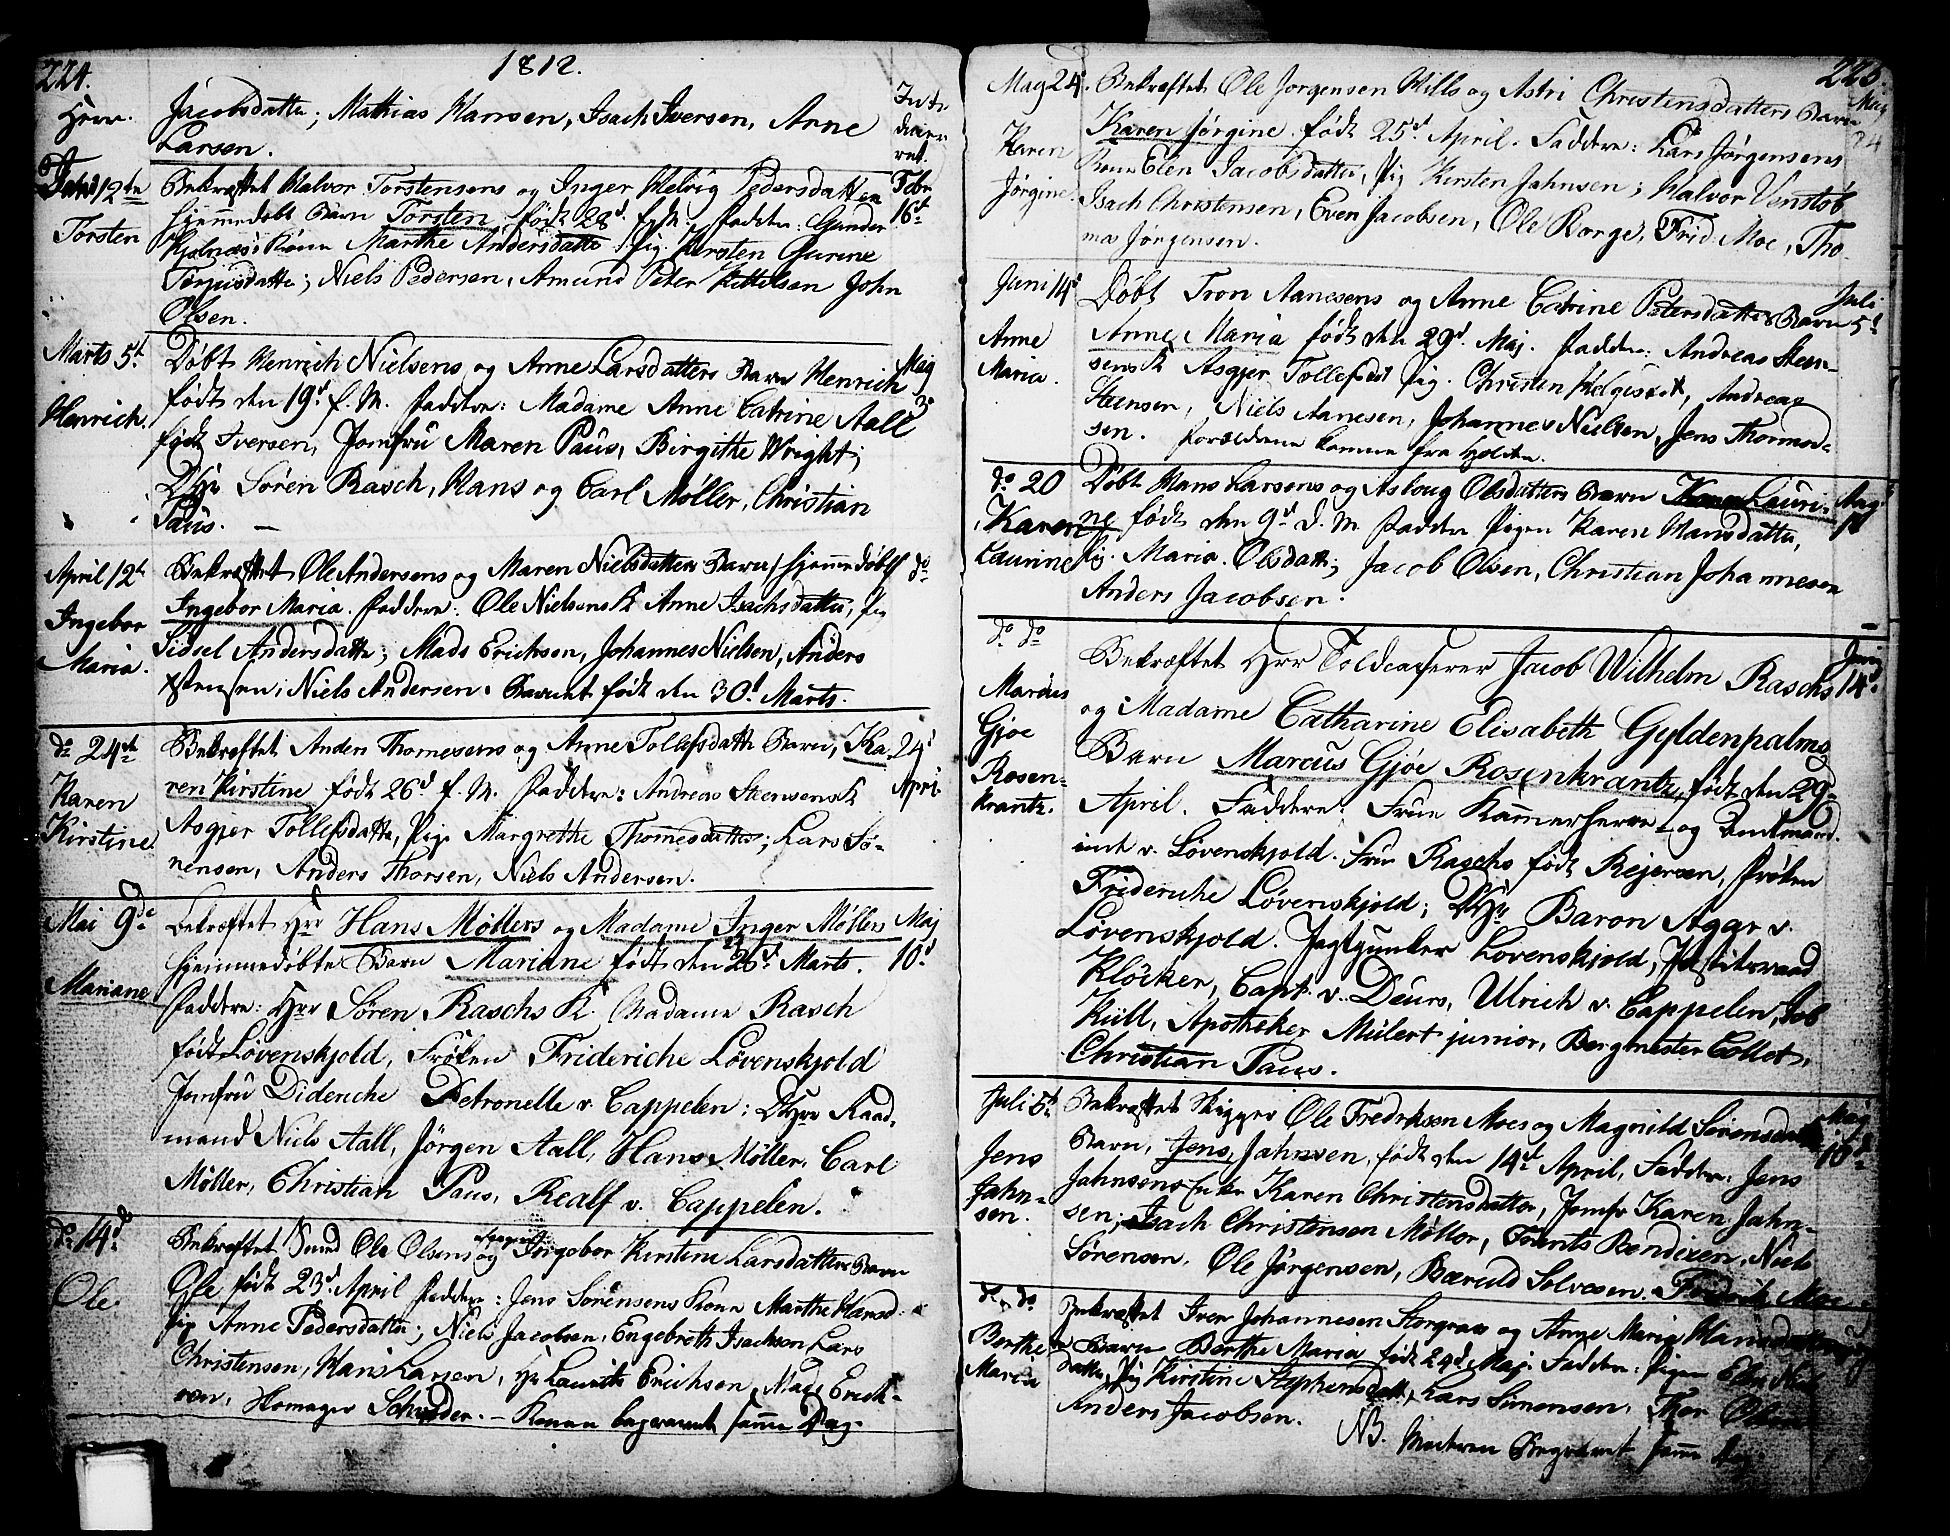 224.
1812.
Jacobsdatter; Mathias Hansen, Isach Iversen, Arne
Larsen.
Introduceret.
12te
Torsten
Bekræftet Halvor Torstensens og Inger Helvig Pedersdatters
hjemmedøbt Barn Torsten, født 28d Fadder: Gunder
Kone Marthe Andersdatter Pig. Kirsten Gurine
Torgusdatter; Niels Pedersen, Amund Peter Kittelsen John
Olsen.
Febr
16d
Marts 5t
Henrich
Døbt Henrich Nielsens og Anne Larsdatters Barn Henrich
født den 19d f. M. Faddere: Madame Anne Catrine Aall
født Iversen, Jomfru Maren Paus, Birgithe Wright;
DHr Søren Rasch, Hans og Carl Møller, Christian
Paus.
Maj
3
April 12t
Ingebor
Maria.
Bekræftet Ole Andersens og Maren Nielsdatters Barn hjemmedøbt
Ingebor Maria. Faddere: Ole Nielsens K Anne Isachsdatter, Pig
Sidsel Andersdatter; Mads Erichsen, Johannes Nielsen, Anders
Stensen; Niels Andersen. Barnet født den 30d Marts.
do
do 24de
Karen
Kirstine
Bekræftet Anders Thomesens og Anne Tollefsdatters Barn, Ka-
ren Kirstine født 26d f. M. Faddere: Andreas Steensens K
Asgjer Tollefsdatter, Pige Margrethe Thomesdatter; Lars Sø-
rensen, Anders Thorsen, Niels Andersen.
24d
April
Mai 9de
Mariane
Bekræftet Hrr Hans Møllers og Madame Inger Møllers
hjemmedøbte Barn Mariane født den Marts.
Faddere: Hrr Søren Raschs K. Madame Rasch
født Løvenskjold, Frøken Frideriche Løvenskjold
Jomfru Dideriche Petronelle v. Cappelen; DHrr Raad-
mand Niels Aall, Jørgen Aall, Hans Møller, Carl
Møller, Christian Paus, Realf v. Cappelen.
Maj
10d
do 14de
Ole
Bekræftet Smed Ole Olsens og Ingebor Kirstine Larsdatters Barn
Ole født 23d April Faddere: Jens Sørensens Kone Marthe Hansd.
Pig Anne Pedersdatter; Niels Jacobsen, Engebreth Isachsen, Lars
Christensen, Hans Larsen, Hr Laurits Erichsen, Mads Erich-
sen, Homager Schrøder. – Konen begravet samme Dag.
225.
May 24.
Karen
Jørgine.
Bekræftet Ole Jørgensen Hills og Astri Christensdatters Barn
Karen Jørgine født 25d April. Faddere: Lars Jørgensens
Kone Elen Jacobsdatter, Pig Kirsten Jahnsen; Halvor Venstøb
Isach Christensen, Even Jacobsen, Ole Borge, Frid. Moe, Tho-
mas Jørgensen.
May
24
Juni 14d
Anne
Maria.
Døbt Tron Aanesens og Anne Catrine Petersdatters Barn
Anne Maria født den 29d Maj. Fadder: Andreas Steen-
sens K Asgjer Tollefsdt Pig. Christen Helgesdt, Andreas
Steensen, Niels Aanesen, Johannes Nielsen, Jens Thormod-
sen. Forældrene komne fra Holden.
Juli
5d
do 20
Karen
Laurine
Døbt Hans Larsens og Asloug Olsdatters Barn Karen Lauri-
ne født den 9d d. M Fadder Pigen Karen Hansdatter,
Pig. Maria Olsdatt; Jacob Olsen, Christian Johannesen
Anders Jacobsen.
do do
Marcus
Gjøe
Rosen-
krantz.
Bekræftet Hrr Toldcasserer Jacob Wilhelm Raschs
og Madame Catharine Elisabeth Gyldenpalms
Barn Marcus Gjøe Rosenkrantz, født den 29d
April. Faddere: Frue Kamerherre- og
v. Løvenskjold. Frue Raschs født Rejersen, Frøken
Frideriche Løvenskjold; DHrr Baron Aggr v.
Løvenskjold. Jagtjunker Løvenskjold, Justitsraad
Kløcker, Capt. v. Deurs, Ulrich v. Cappelen, Job
Kiill, Apotheker Mülert junior, Bergmester Collet,
Christian Paus.
Juny
14d
Juli 5te
Jens
Jahn-
sen.
Bekræftet Skipper Ole Fredriksen Moes og Magnild Sørensdatters
Barn, Jens Jahnsen, født den 14de April, Faddere: Jens
Jahnsens Enke Karen Christensdatter, Jomfr Karen Jahn-
sen; Isach Christensen Møller, Tønnes Bendixen, Niels
Sørensen, Ole Jørgensen, Bæruld Solvesen. Fredrik Moe
Maj
10d
do do
Berthe
Maria
Bekræftet Iver Johannesen Storgrav og Anne Maria Hansdatters
Barn Berthe Maria født 24d Maj. Faddere: Pigen Ellen Niels-
datter, Pig Kirstine Stephensdatt, Lars Simonsen, Thor Olsen
Anders Jacobsen.
NB. Moderen Begravet samme Dag.